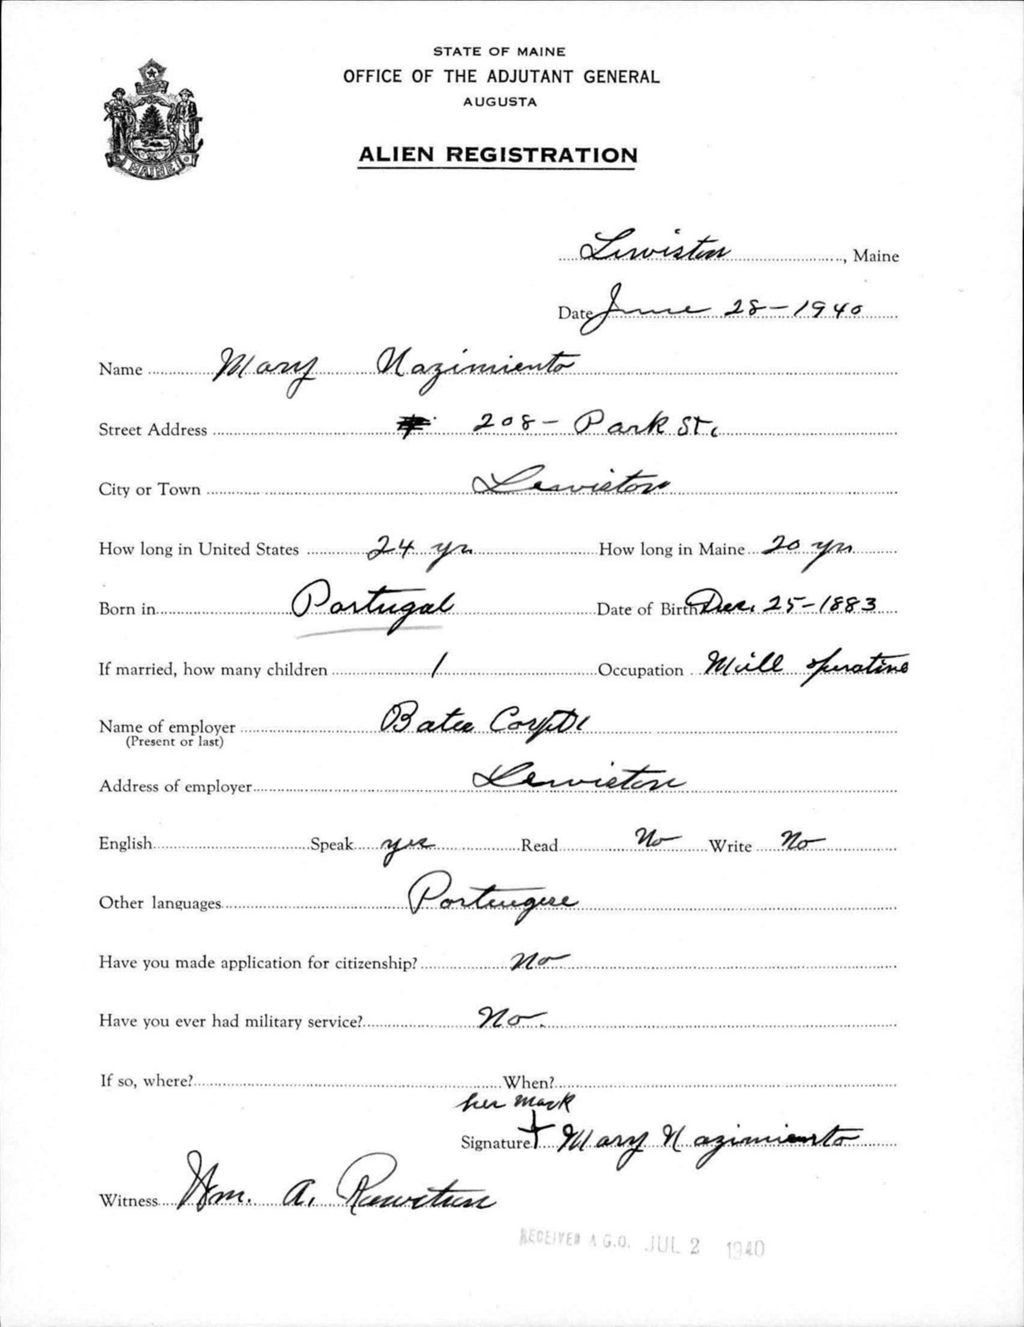 STATE OF MAINE
OFFICE OF THE ADJUTANT GENERAL
AUGUSTA
ALIEN REGISTRATION
MAINE
Lewiston, Maine
Date June 28-1940
Name Mary Nazimiento
Street Address 208- Park St.
City or Town Lewiston
How long in United States 24 yrs How long in Maine 20 yrs
Born in Portugal Date of Birth Dec. 25-1883
If married, how many children 1 Occupation Mill operative
Name of employer Bates
(Present or last)
Address of employer Lewiston
English Speak yes Read No Write No
Other languages Portugese
Have you made application for citizenship? No
Have you ever had military service? No.
If so, where? When?
her mark
Signature + Mary Nazimiento
Witness Wm. A.
RECEIVED A.G.O. JUL 2 1940